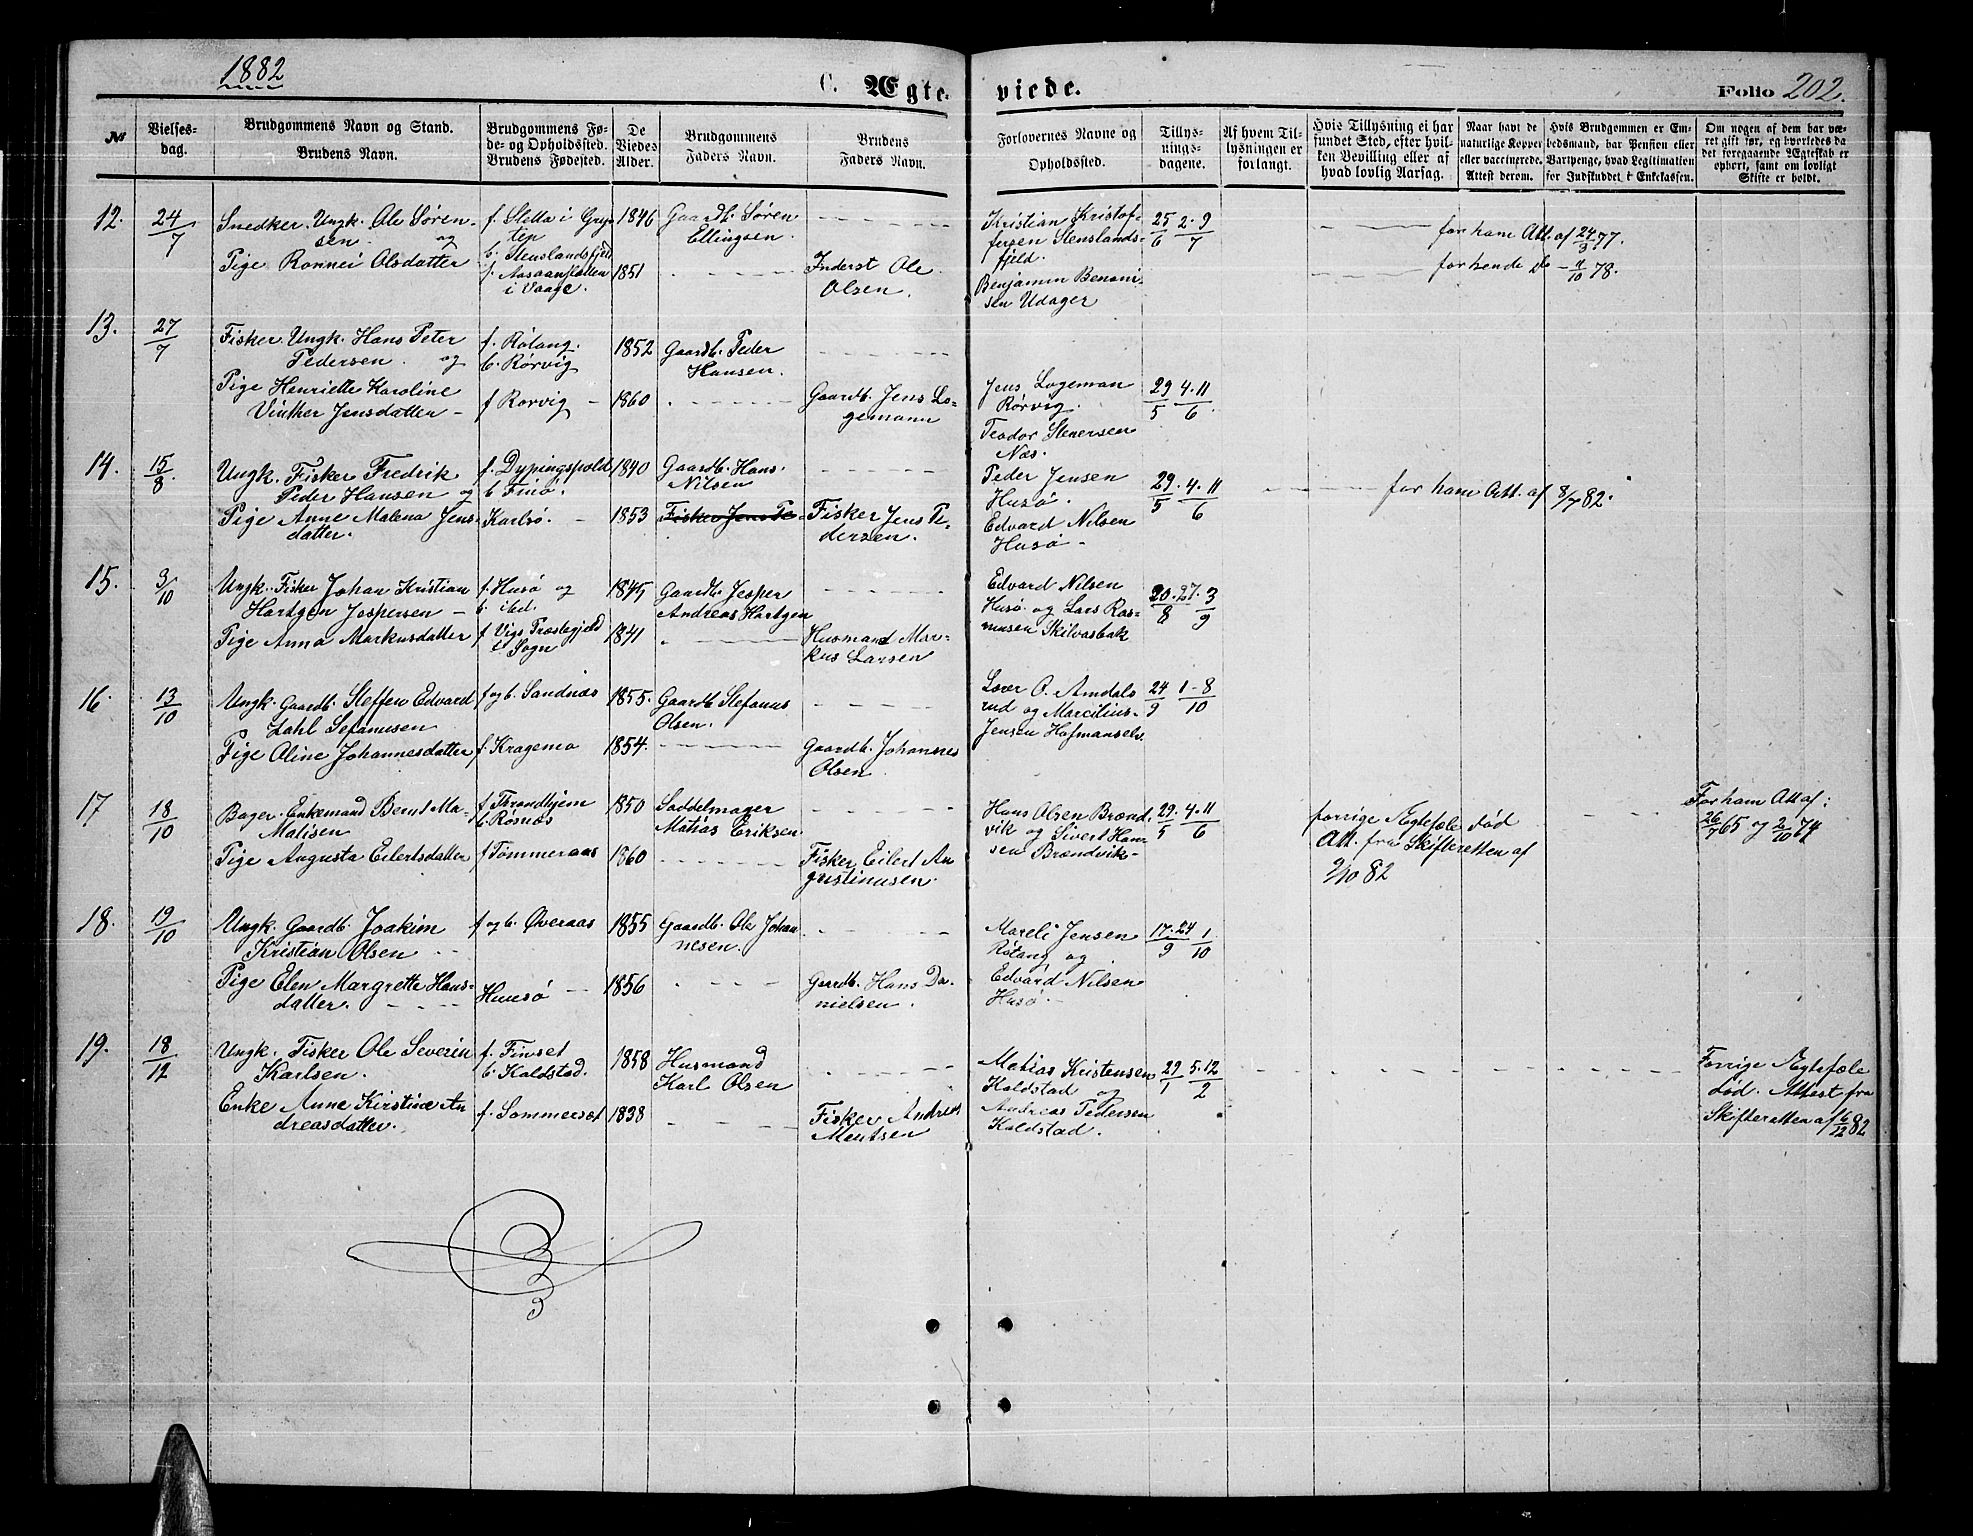 1882
C. Ægteviede.
Folio 202.
№
Vielsesdag.
Brudgommens Navn og Stand.
Brudens Navn.
Brudgommens Føde- og Opholdssted.
Brudens Fødested.
De Viedes Alder.
Brudgommens Faders Navn.
Brudens Faders Navn.
Forlovernes Navne og Opholdssted.
Tillysningsdagene.
Af hvem Tillysningen er forlangt.
Hvis Tillysning ei har fundet Sted, efter hvilken Bevilling eller af hvad lovlig Aarsag.
Naar havt de naturlige Kopper eller vaccinerede. Attest derom.
Hvis Brudgommen er Embedsmand, har Pension eller Vartpenge, hvad Legitimation for Indskuddet i Enkekassen.
Om nogen af dem har været gift før, og hvorledes da det foregaaende Ægteskab er ophørt, samt om lovligt Skifte er holdt.
12. 24/7
Snedker Ungk. Ole Sørensen og
f. Sletta i Gryten
b. Stenslandsfjeld
1846
Gaardb. Søren
Ellingsen.
Pige Ronnei Olsdatter
i Vaage.
1851
Inderst Ole
Olsen.
Kristian Kristoffersen Stenslandsfjeld.
Benjamin Benonisen Udager
25/6 2. 9/7
for ham Att. af 24/3 77.
for hende do - 11/10 78.
13. 27/7
Fisker Ungk. Hans Peter
Pedersen. og
f. Røtang.
b. Rørvig
1852
Gaardb. Peder
Hansen.
Pige Henriette Karoline
Vinther Jensdatter -
f Rørvig -
1860
Gaardb. Jens Logemann
Jens Logeman
Rørvig.
Teodor Stenersen
Næs.
29/5 4. 11/6
14. 15/8
Ungk. Fisker Fredrik
Peder Hansen og
f. Dypingspold
b Finø.
1840
Gaardb. Hans
Nilsen
Pige Anne Malena Jensdatter.
Karlsø. -
1853
Fisker Jens Pe-
Fisker Jens Pedersen.
Peder Jensen
Husø.
Edvard Nilsen
Husø -
29/5 4. 11/6
for ham Att. af 8/7 82.
15. 3/10
Ungk. Fisker Johan Kristian
Hartgen Jespersen -
f. Husø og
b. ibd.
1845
Gaardb. Jesper
Andreas Hartgen
Pige Anna Markusdatter
f Vigs Præstegjeld
i Sogn
1841
Husmand Markus Larsen
Edvard Nilsen
Husø og Lars Rasmusen Skilvasbak
20. 27/8 3/9
16. 13/10
Ungk. Gaardb. Steffen Edvard
Dahl Stefanusen
f og b. Sandnæs
1855.
Gaardb Stefanus
Olsen.
Pige Oline Johannesdatter
f. Kragemo
1854.
Gaardb. Johannes
Olsen
O. Amdalsrud og Marcilius
Jensen Hofmanselv.
24/9 1 - 8/10
17 18/10
Bager. Enkemand Bernt Matisen
f. Throndhjem
b. Røsnæs
1850
Saddelmager
Matias Eriksen
Pige Augusta Eilertsdatter
f Tømmeraas
1860
Fisker Eilert Angustinusen.
Hans Olsen Brændvik og Sivert Hansen Brændvik-
29/5 4. 11/6
forrige Ægtefæle død
Att. fra Skifteretten af
9/10 82
For ham Att af:
26/7 65 og 2/10 74
18. 19/10
Ungk. Gaardb. Joakim
Kristian Olsen
f og b. Øveraas
1855
Gaardb. Ole Johannesen.
Pige Elen Margrette Hansdatter.
Husø
1856
Gaardb. Hans Danielsen.
Mareli Jensen
Røtang og
Edvard Nilsen
Husø.
17. 24/9 1/10
19. 18/12
Ungk. Fisker Ole Severin
Karlsen.
f. Finset
b. Kaldstad.
1858
Husmand
Karl Olsen
Enke Anne Kirstine Andreasdatter.
f. Sommerset
1838
Fisker Andreas
Mentsen
Matias Kristensen
Kaldstad og
Andreas Pedersen
Kaldstad.
29/1 5. 12/2
Forrige Ægtefæle
død. Attest fra
Skifteretten af 16/12 82